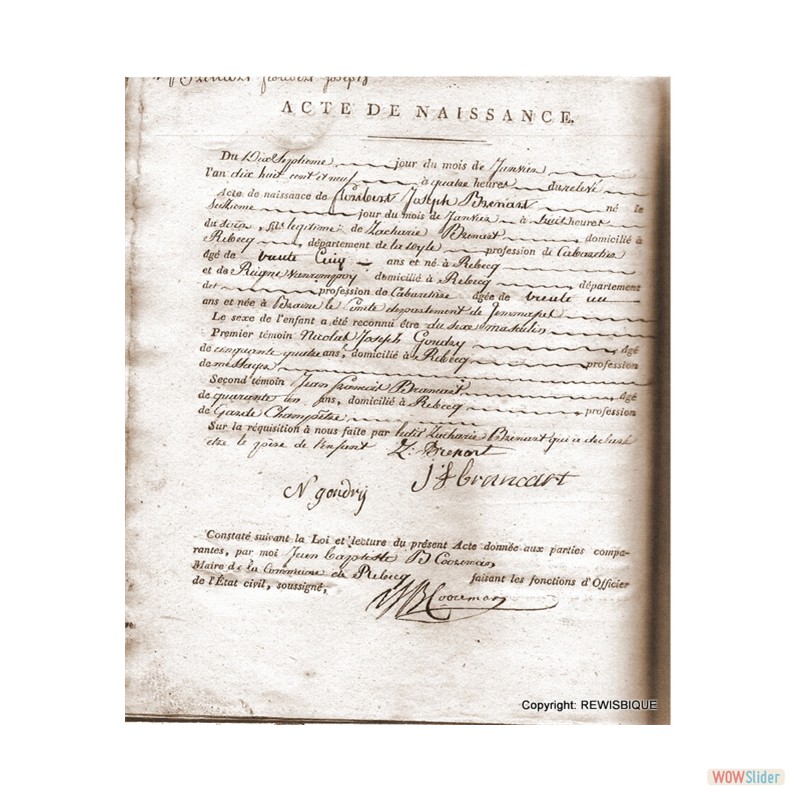 Joseph
ACTE DE NAISSANCE.
Du Dix Septieme jour du mois de Janvier
l'an dix huit cent et neuf à quatre heures du relevé
Acte de naissance de Joseph Brenart né le
Seizieme jour du mois de Janvier à huit heures
du Soir, fils legitime de Zacharie Brenart domicilié à
Rebecq, département de la Dyle profession de Cabaretier
âgé de trente Cinq ans et né à Rebecq
et de domicilié à Rebecq, département
det profession de Cabaretiere âgée de trente un
ans et née à Braine le Comte departement de Jemmapes
Le sexe de l'enfant a été reconnu être du sexe masculin
Premier témoin Nicolas Joseph Goudry, âgé
de cinquante quatre ans, domicilié à Rebecq, profession
de messager
Second témoin Jean François Brancart, âgé
de quarante un ans, domicilié à Rebecq, profession
de Garde Champêtre
Sur la réquisition à nous faite par ledit Zacharie Brenart qui a declaré
etre le père de l'enfant Z. Brenart
J f brancart
N goudrij
Constaté suivant la Loi et lecture du présent Acte donnée aux parties compa-
rantes, par moi Jean Baptiste B Cooreman
Maire de la Commune de Rebecq faisant les fonctions d'Officier
de l'État civil, soussigné,
JB Cooreman
Copyright: REWISBIQUE
WOWSlider